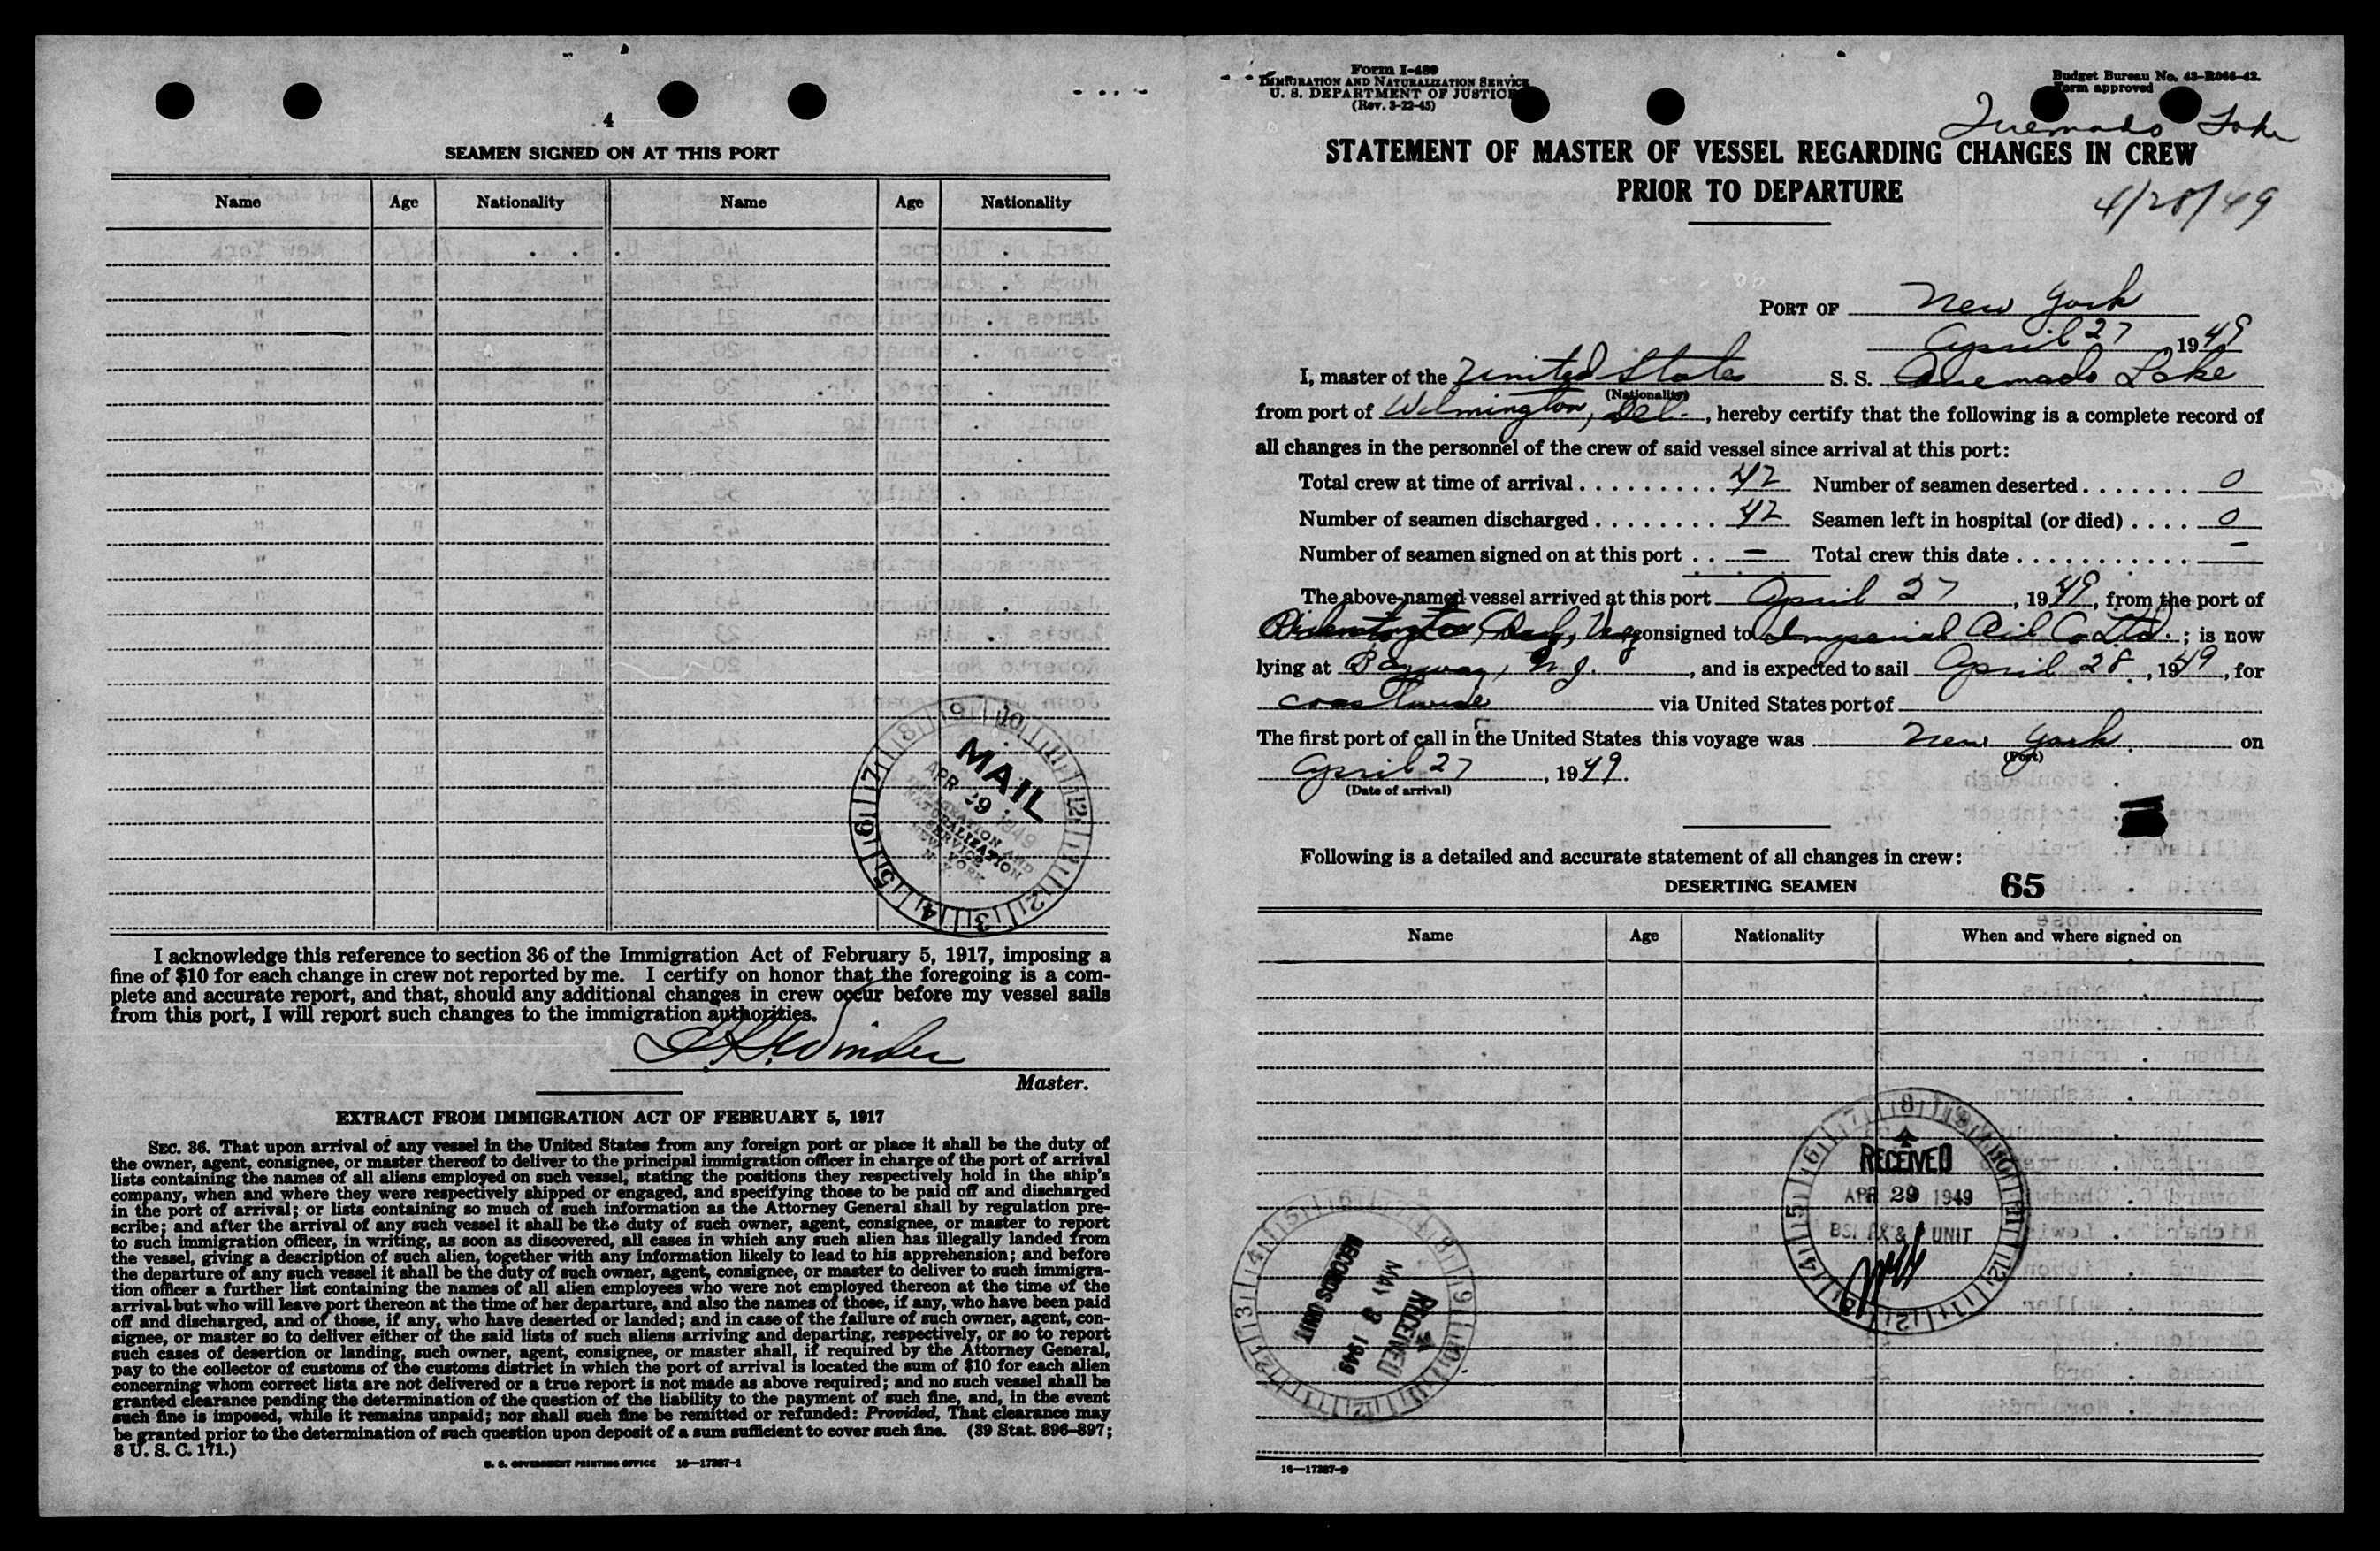 4
SEAMEN SIGNED ON AT THIS PORT
Name Age Nationality Name Age Nationality
MAIL
APR 29 1949
IMMIGRATION AND
NATURALIZATION
SERVICE
NEW YORK
N. Y.
I acknowledge this reference to section 36 of the Immigration Act of February 5, 1917, imposing a
fine of $10 for each change in crew not reported by me. I certify on honor that the foregoing is a com-
plete and accurate report, and that, should any additional changes in crew occur before my vessel sails
from this port, I will report such changes to the immigration authorities.
Winder
Master.
EXTRACT FROM IMMIGRATION ACT OF FEBRUARY 5, 1917
SEC. 36. That upon arrival of any vessel in the United States from any foreign port or place it shall be the duty of
the owner, agent, consignee, or master thereof to deliver to the principal immigration officer in charge of the port of arrival
lists containing the names of all aliens employed on such vessel, stating the positions they respectively hold in the ship's
company, when and where they were respectively shipped or engaged, and specifying those to be paid off and discharged
in the port of arrival; or lists containing so much of such information as the Attorney General shall by regulation pre-
scribe; and after the arrival of any such vessel it shall be the duty of such owner, agent, consignee, or master to report
to such immigration officer, in writing, as soon as discovered, all cases in which any such alien has illegally landed from
the vessel, giving a description of such alien, together with any information likely to lead to his apprehension; and before
the departure of any such vessel it shall be the duty of such owner, agent, consignee, or master to deliver to such immigra-
tion officer a further list containing the names of all alien employees who were not employed thereon at the time of the
arrival but who will leave port thereon at the time of her departure, and also the names of those, if any, who have been paid
off and discharged, and of those, if any, who have deserted or landed; and in case of the failure of such owner, agent, con-
signee, or master so to deliver either of the said lists of such aliens arriving and departing, respectively, or so to report
such cases of desertion or landing, such owner, agent, consignee, or master shall, if required by the Attorney General,
pay to the collector of customs of the customs district in which the port of arrival is located the sum of $10 for each alien
concerning whom correct lists are not delivered or a true report is not made as above required; and no such vessel shall be
granted clearance pending the determination of the question of the liability to the payment of such fine, and, in the event
such fine is imposed, while it remains unpaid; nor shall such fine be remitted or refunded: Provided, That clearance may
be granted prior to the determination of such question upon deposit of a sum sufficient to cover such fine. (39 Stat. 896–897;
8 U. S. C. 171.)
U. S. GOVERNMENT PRINTING OFFICE 16—17387-1
Form I-489
IMMIGRATION AND NATURALIZATION SERVICE
U. S. DEPARTMENT OF JUSTICE
(Rev. 3-22-45)
Budget Bureau No. 43-R066-42.
Form approved
Quemado Lake
STATEMENT OF MASTER OF VESSEL REGARDING CHANGES IN CREW
PRIOR TO DEPARTURE
4/28/49
PORT OF New York
April 27 1949
I, master of the United States S. S. Quemado Lake
(Nationality)
from port of Wilmington, Del., hereby certify that the following is a complete record of
all changes in the personnel of the crew of said vessel since arrival at this port:
Total crew at time of arrival . . . . . . . . . 42 Number of seamen deserted . . . . . . . 0
Number of seamen discharged . . . . . . . . 42 Seamen left in hospital (or died) . . . . 0
Number of seamen signed on at this port . . — Total crew this date . . . . . . . . . . . —
The above-named vessel arrived at this port April 27, 1949, from the port of
consigned to Imperial Oil Co Ltd.; is now
lying at Bayway, N.J., and is expected to sail April 28, 1949, for
coastwise via United States port of
The first port of call in the United States this voyage was New York on
(Port)
April 27, 1949.
(Date of arrival)
Following is a detailed and accurate statement of all changes in crew:
DESERTING SEAMEN 65
Name Age Nationality When and where signed on
RECEIVED
APR 29 1949
UNIT
RECEIVED
MAY 3 1949
RECORDS UNIT
16—17387-2